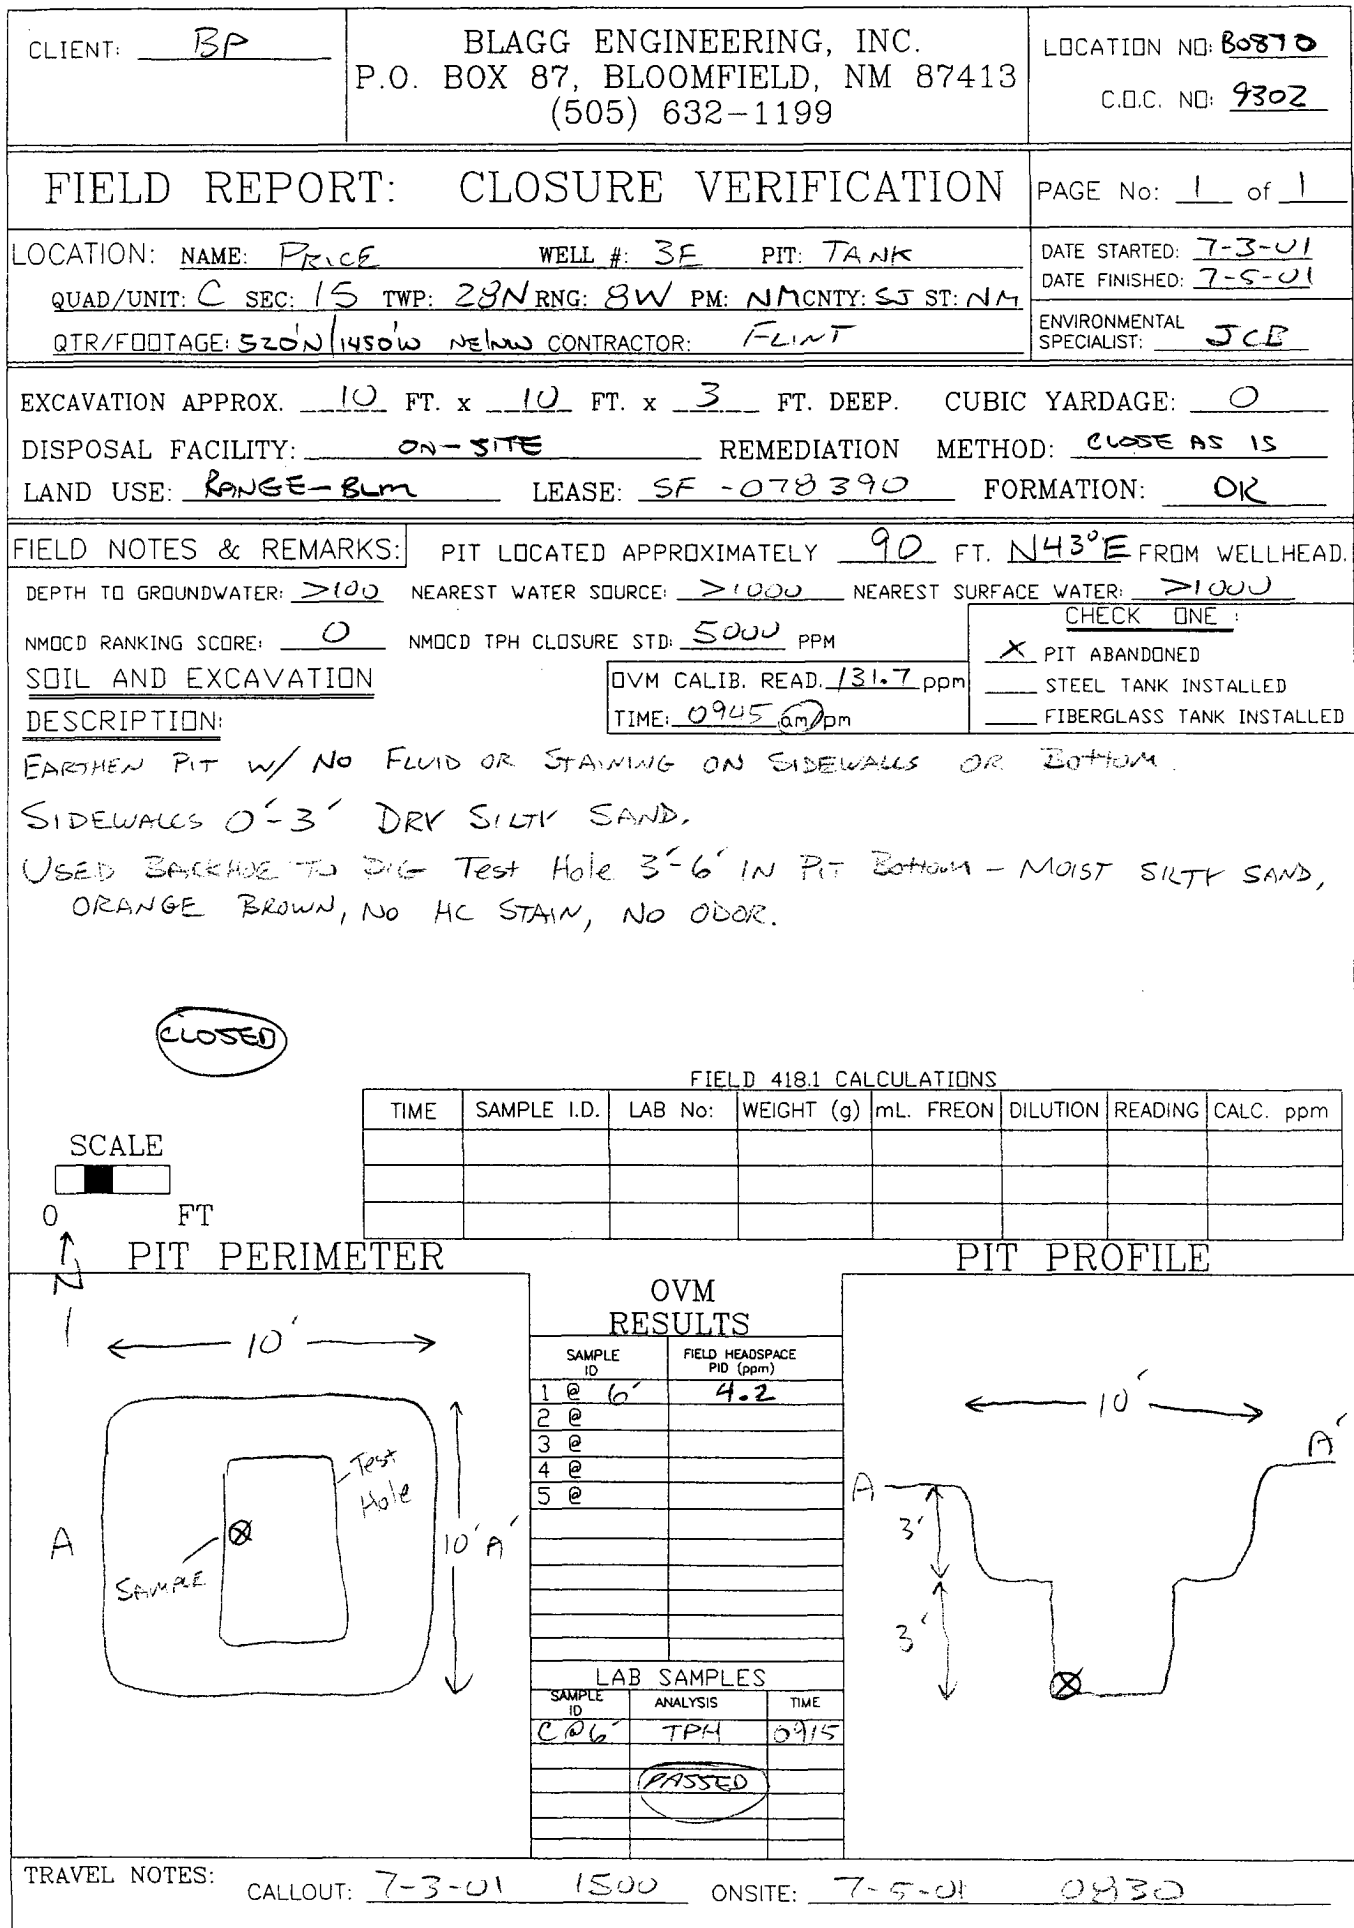 CLIENT: BP
BLAGG ENGINEERING, INC.
P.O. BOX 87, BLOOMFIELD, NM 87413
(505) 632-1199
LOCATION NO: B0870
C.O.C. NO: 9302
FIELD REPORT: CLOSURE VERIFICATION
PAGE No: 1 of 1
LOCATION: NAME: PRICE WELL #: 3E PIT: TANK
QUAD/UNIT: C SEC: 15 TWP: 28N RNG: 8W PM: NM CNTY: SJ ST: NM
QTR/FOOTAGE: 520'N/1450'W NE/NW CONTRACTOR: FLINT
DATE STARTED: 7-3-01
DATE FINISHED: 7-5-01
ENVIRONMENTAL
SPECIALIST: JCB
EXCAVATION APPROX. 10 FT. x 10 FT. x 3 FT. DEEP. CUBIC YARDAGE: 0
DISPOSAL FACILITY: ON-SITE REMEDIATION METHOD: CLOSE AS IS
LAND USE: RANGE-BLM LEASE: SF-078390 FORMATION: DK
FIELD NOTES & REMARKS: PIT LOCATED APPROXIMATELY 90 FT. N43°E FROM WELLHEAD.
DEPTH TO GROUNDWATER: >100 NEAREST WATER SOURCE: >1000 NEAREST SURFACE WATER: >1000
NMOCD RANKING SCORE: 0 NMOCD TPH CLOSURE STD: 5000 PPM
CHECK ONE :
X PIT ABANDONED
STEEL TANK INSTALLED
FIBERGLASS TANK INSTALLED
SOIL AND EXCAVATION
DESCRIPTION:
OVM CALIB. READ. 131.7 ppm
TIME: 0945 am/pm
EARTHEN PIT W/ NO FLUID OR STAINING ON SIDEWALLS OR BOTTOM.
SIDEWALLS 0'-3' DRY SILTY SAND.
USED BACKHOE TO DIG Test Hole 3'-6' IN PIT BOTTOM - MOIST SILTY SAND,
ORANGE BROWN, NO HC STAIN, NO ODOR.
CLOSED
FIELD 418.1 CALCULATIONS
TIME SAMPLE I.D. LAB No: WEIGHT (g) mL. FREON DILUTION READING CALC. ppm
SCALE
0 FT
N
PIT PERIMETER
PIT PROFILE
10'
Test
Hole
A
10'
A'
SAMPLE
OVM
RESULTS
SAMPLE
ID
FIELD HEADSPACE
PID (ppm)
1 @ 6' 4.2
2 @
3 @
4 @
5 @
LAB SAMPLES
SAMPLE
ID
ANALYSIS
TIME
C@6' TPH 0915
PASSED
10'
A'
A
3'
3'
TRAVEL NOTES:
CALLOUT: 7-3-01 1500 ONSITE: 7-5-01 0830